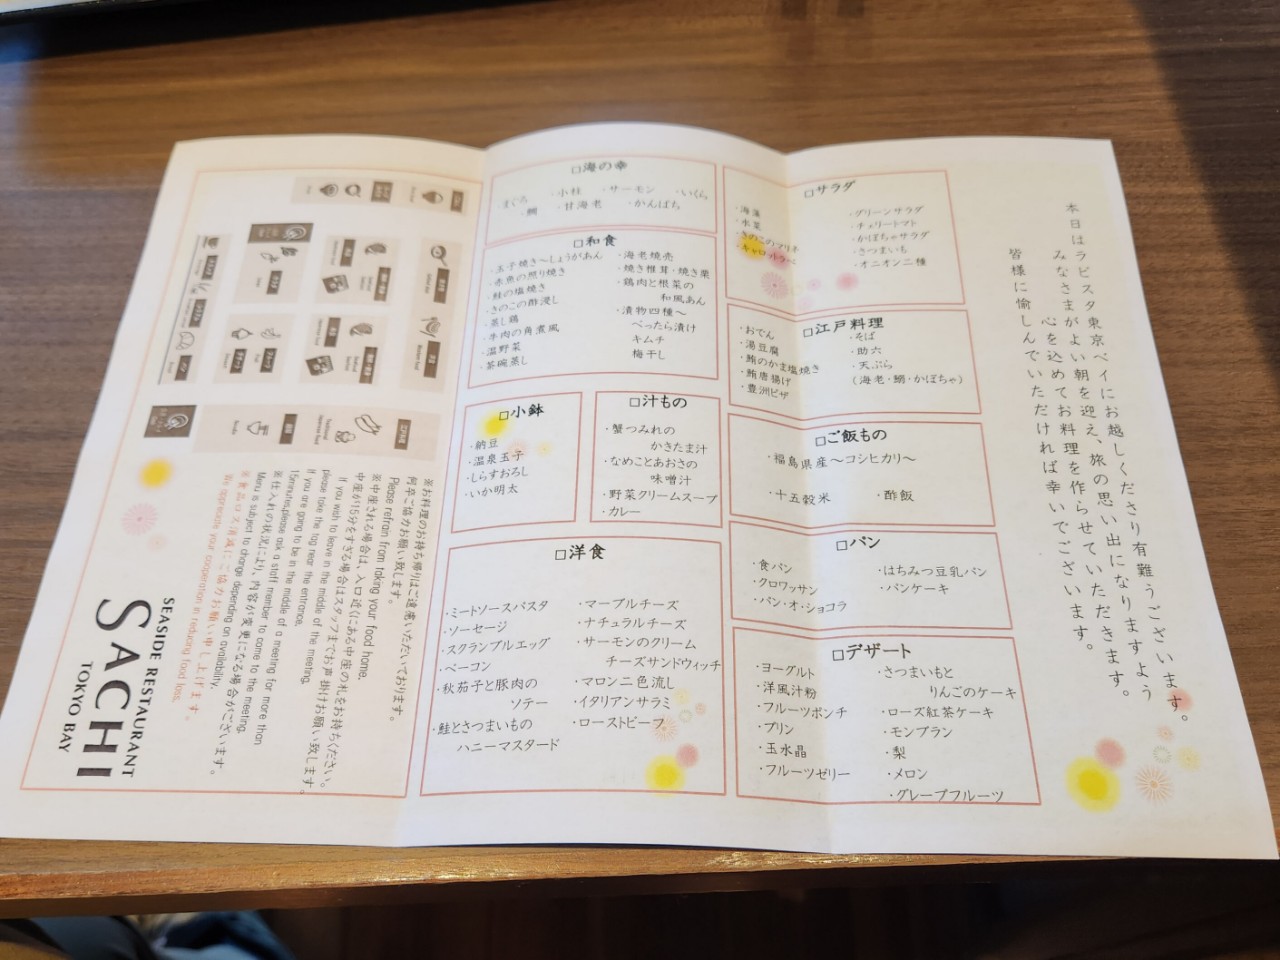 本日はラビスタ東京ベイにお越しくださり有難うございます。
みなさまがよい朝を迎え、旅の思い出になりますよう
心を込めてお料理を作らせていただきます。
皆様に愉しんでいただければ幸いでございます。
□海の幸
・まぐろ ・小柱 ・サーモン ・いくら
・鯛 ・甘海老 ・かんぱち
□和食
・玉子焼き～しょうがあん
・赤魚の照り焼き
・鮭の塩焼き
・きのこの酢浸し
・蒸し鶏
・牛肉の角煮風
・温野菜
・茶碗蒸し
・海老焼売
・焼き椎茸・焼き栗
・鶏肉と根菜の
和風あん
・漬物四種～
べったら漬け
キムチ
梅干し
□小鉢
・納豆
・温泉玉子
・しらすおろし
・いか明太
□汁もの
・蟹つみれの
かきたま汁
・なめことあおさの
味噌汁
・野菜クリームスープ
・カレー
□洋食
・ミートソースパスタ
・ソーセージ
・スクランブルエッグ
・ベーコン
・秋茄子と豚肉の
ソテー
・鮭とさつまいもの
ハニーマスタード
・マーブルチーズ
・ナチュラルチーズ
・サーモンのクリーム
チーズサンドウィッチ
・マロン二色流し
・イタリアンサラミ
・ローストビーフ
□サラダ
・海藻
・水菜
・きのこのマリネ
・キャロットラペ
・グリーンサラダ
・チェリートマト
・かぼちゃサラダ
・さつまいも
・オニオン二種
□江戸料理
・おでん
・湯豆腐
・鮪のかま塩焼き
・鮪唐揚げ
・豊洲ピザ
・そば
・助六
・天ぷら
(海老・鯛・かぼちゃ)
□ご飯もの
・福島県産～コシヒカリ～
・十五穀米 ・酢飯
□パン
・食パン
・クロワッサン
・パン・オ・ショコラ
・はちみつ豆乳パン
・パンケーキ
□デザート
・ヨーグルト
・洋風汁粉
・フルーツポンチ
・プリン
・玉水晶
・フルーツゼリー
・さつまいもと
りんごのケーキ
・ローズ紅茶ケーキ
・モンブラン
・梨
・メロン
・グレープフルーツ
※お料理のお持ち帰りはご遠慮いただいております。
何卒ご協力お願い致します。
Please refrain from taking your food home.
※中座される場合は、入口近くにある中座の札をお持ちください。
中座が15分をすぎる場合はスタッフまでお声掛けお願い致します。
If you wish to leave in the middle of the meeting,
please take the tag near the entrance.
If you are going to be in the middle of a meeting for more than
15minutes,please ask a staff member to come to the meeting.
※仕入れの状況により、内容が変更になる場合がございます。
Menu is subject to change depending on availability.
※食品ロス消減にご協力お願い申し上げます。
We appreciate your cooperation in reducing food loss.
SEASIDE RESTAURANT
SACHI
TOKYO BAY